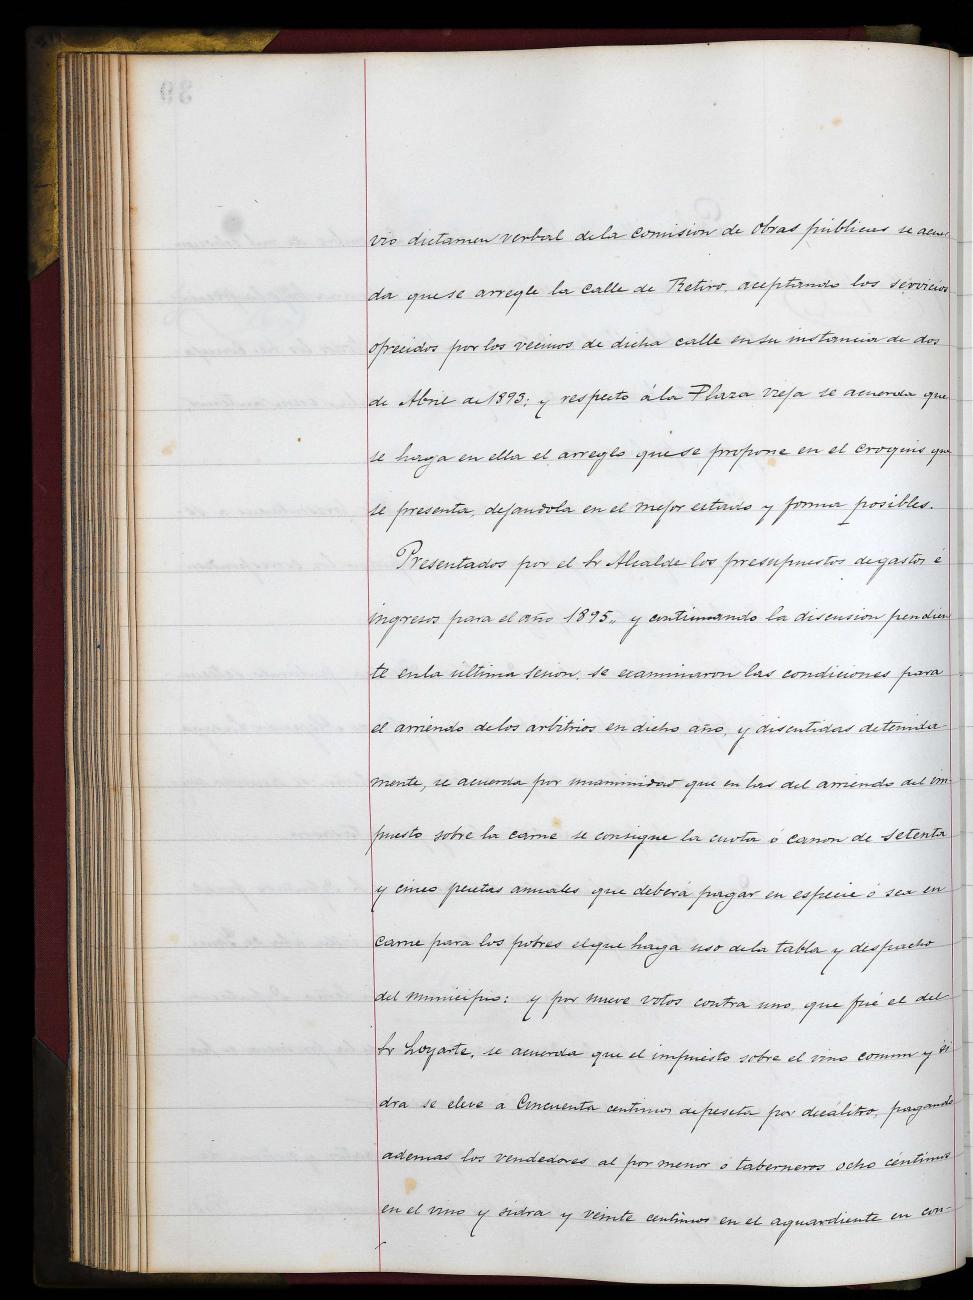 vio dictamen verbal de la comision de obras públicas se acuer
da que se arregle la calle de Retiro, aceptando los servicios
ofrecidos por los vecinos de dicha calle en su instancia de dos
de Abril de 1893; y respecto á la Plaza vieja se acuerda que
se haga en ella el arreglo que se propone en el croquis que
se presenta, dejandola en el mejor estado y forma posibles.
Presentados por el Sr Alcalde los presupuestos de gastos é
ingresos para el año 1895,, y continuando la discusion pendien
te en la última sesion, se examinaron las condiciones para
el arriendo de los arbitrios en dicho año, y discutidas detenida
mente, se acuerda por unanimidad que en las del arriendo del im-
puesto sobre la carne se consigne la cuota ó canon de setenta
y cinco pesetas anuales que deberá pagar en especie ó sea en
carne para los pobres el que haga uso de la tabla y despacho
del municipio: y por nueve votos contra uno, que fué el del
Sr Loyarte, se acuerda que el impuesto sobre el vino comun y si
dra se eleve a Cincuenta centimos de peseta por decálitro, pagando
ademas los vendedores al por menor ó taberneros ocho céntimos
en el vino y sidra y veinte centimos en el aguardiente en con-